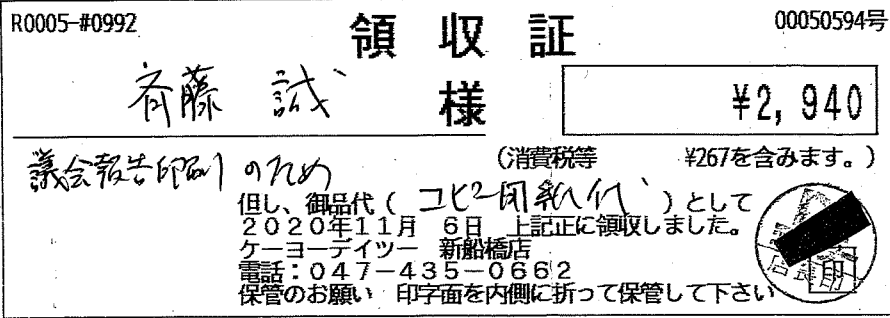 R0005-#0992
領収証
00050594号
斉藤 誠 様
¥2,940
(消費税等 ¥267を含みます。)
議会報告印刷のため
但し、御品代(コピー用紙代)として
2020年11月 6日 上記正に領収しました。
ケーヨーデイツー 新船橋店
電話:047-435-0662
保管のお願い 印字面を内側に折って保管して下さい
印